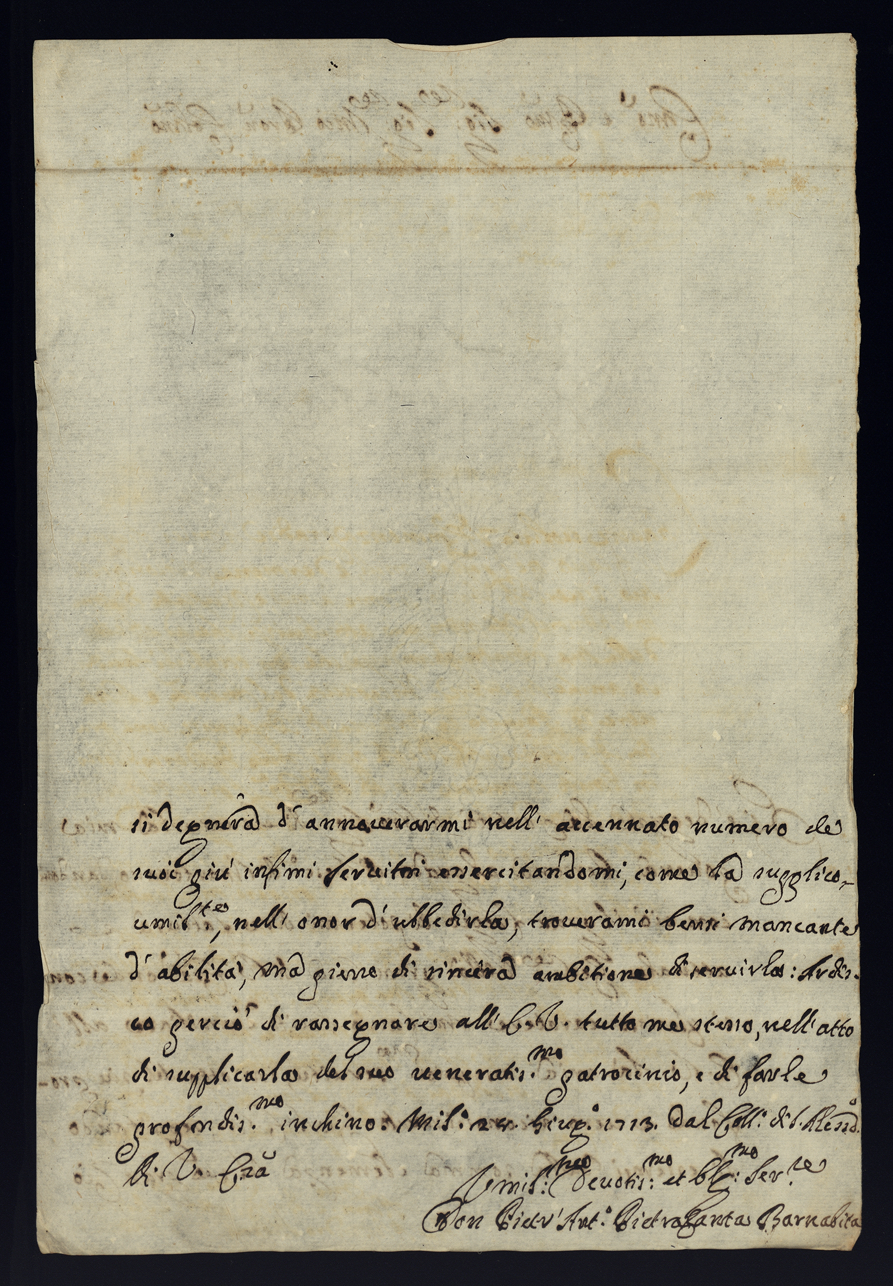 si degnerà d' annouerarmi nell' accennato numero de
suoi più infimi seruitori essercitandomi, come la supplico
umil.te, nell' onor d' ubbedirla, trouerami bensi mancante
d' abilità, mà pieno di sincera ambitione di seruirla: Ardis-
co perciò di rassegnare all' E. V. tutto me stesso, nell' atto
di supplicarla del suo ueneratis.mo patrocinio, e di farle
profondis.mo inchino. Mil.o Giug.o 1713. Dal Coll.o di S. Aless.o
di V. Ecc.a
Vmil.mo Deuotis.mo et Obl.mo Ser.re
Don Pietr' Ant.o Pietrasanta Barnabita